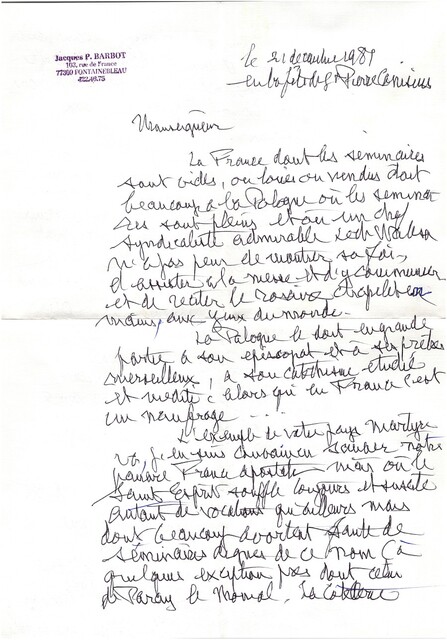 Jacques P. BARBOT
162, rue de France
77300 FONTAINEBLEAU
422.46.75
le 21 decembre 1981
en la fête de St Pierre Canisius
Monseigneur
La France dont les séminaires
sont vides, ou loués ou vendus doit
beaucoup à la Pologne où les seminai
res sont pleins et où un chef
syndicaliste admirable Lech Walesa
n'a pas peur de montrer sa foi,
d'assister à la messe et d'y communier
et de réciter le rosaire chapelet en
mains, aux yeux du monde.
La Pologne le doit en grande
partie à son episcopat et à ses prêtres
merveilleux, à son catéchisme étudié
et médité alors qu'en France c'est
un naufrage
L'exemple de votre pays martyre
va, j'en suis convaincu sauver notre
pauvre France apostate mais où le
Saint Esprit souffle toujours et suscite
autant de vocations qu'ailleurs mais
dont beaucoup avortent faute de
séminaires dignes de ce nom (à
quelques exception près dont celui
de Paray le Monial. La